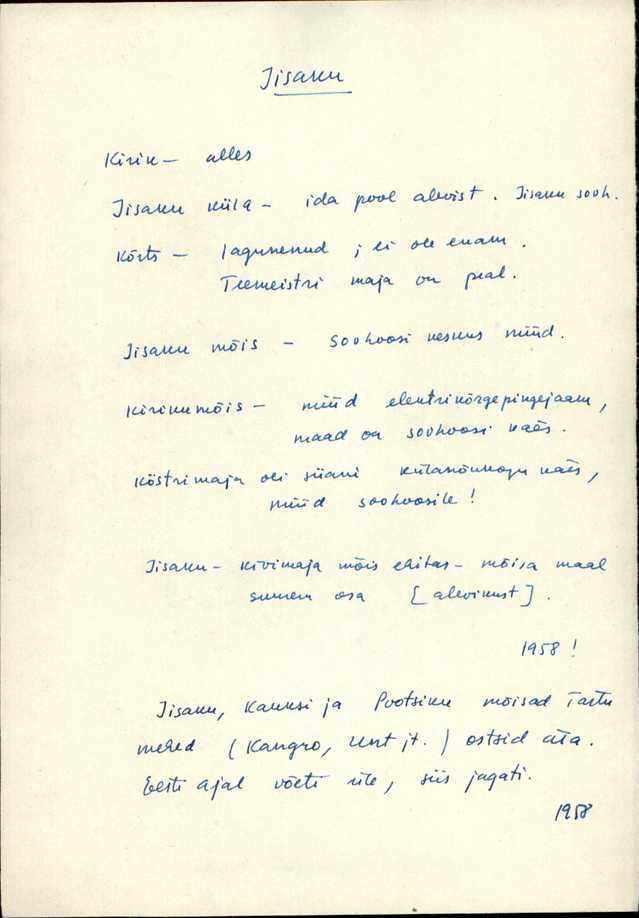 Iisaku
Kirik – alles
Iisaku küla – ida pool alevist. Iisaku sovh.
Kõrts – lagunenud; ei ole enam.
Teemeistri maja on peal.
Iisaku mõis – sovhoosi keskus nüüd.
Kirikumõis – nüüd elektrikõrgepingejaam,
maad on sovhoosi käes.
Köstrimaja oli siiani külanõukogu käes,
nüüd sovhoosile!
Iisaku – kivimaja mõis ehitas – mõisa maal
suurem osa [alevikust].
1958!
Iisaku, Kauksi ja Pootsiku mõisad Tartu
mehed (Kangro, Unt jt.) ostsid ära.
Eesti ajal võeti üle, siis jagati.
1958